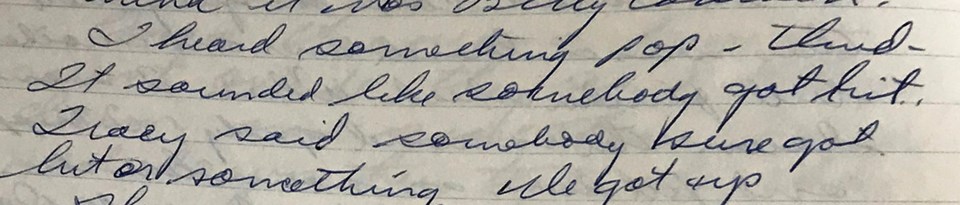 it was
I heard something pop - thud -
It sounded like somebody got hit.
Tracy said somebody sure got
hit or something We got up